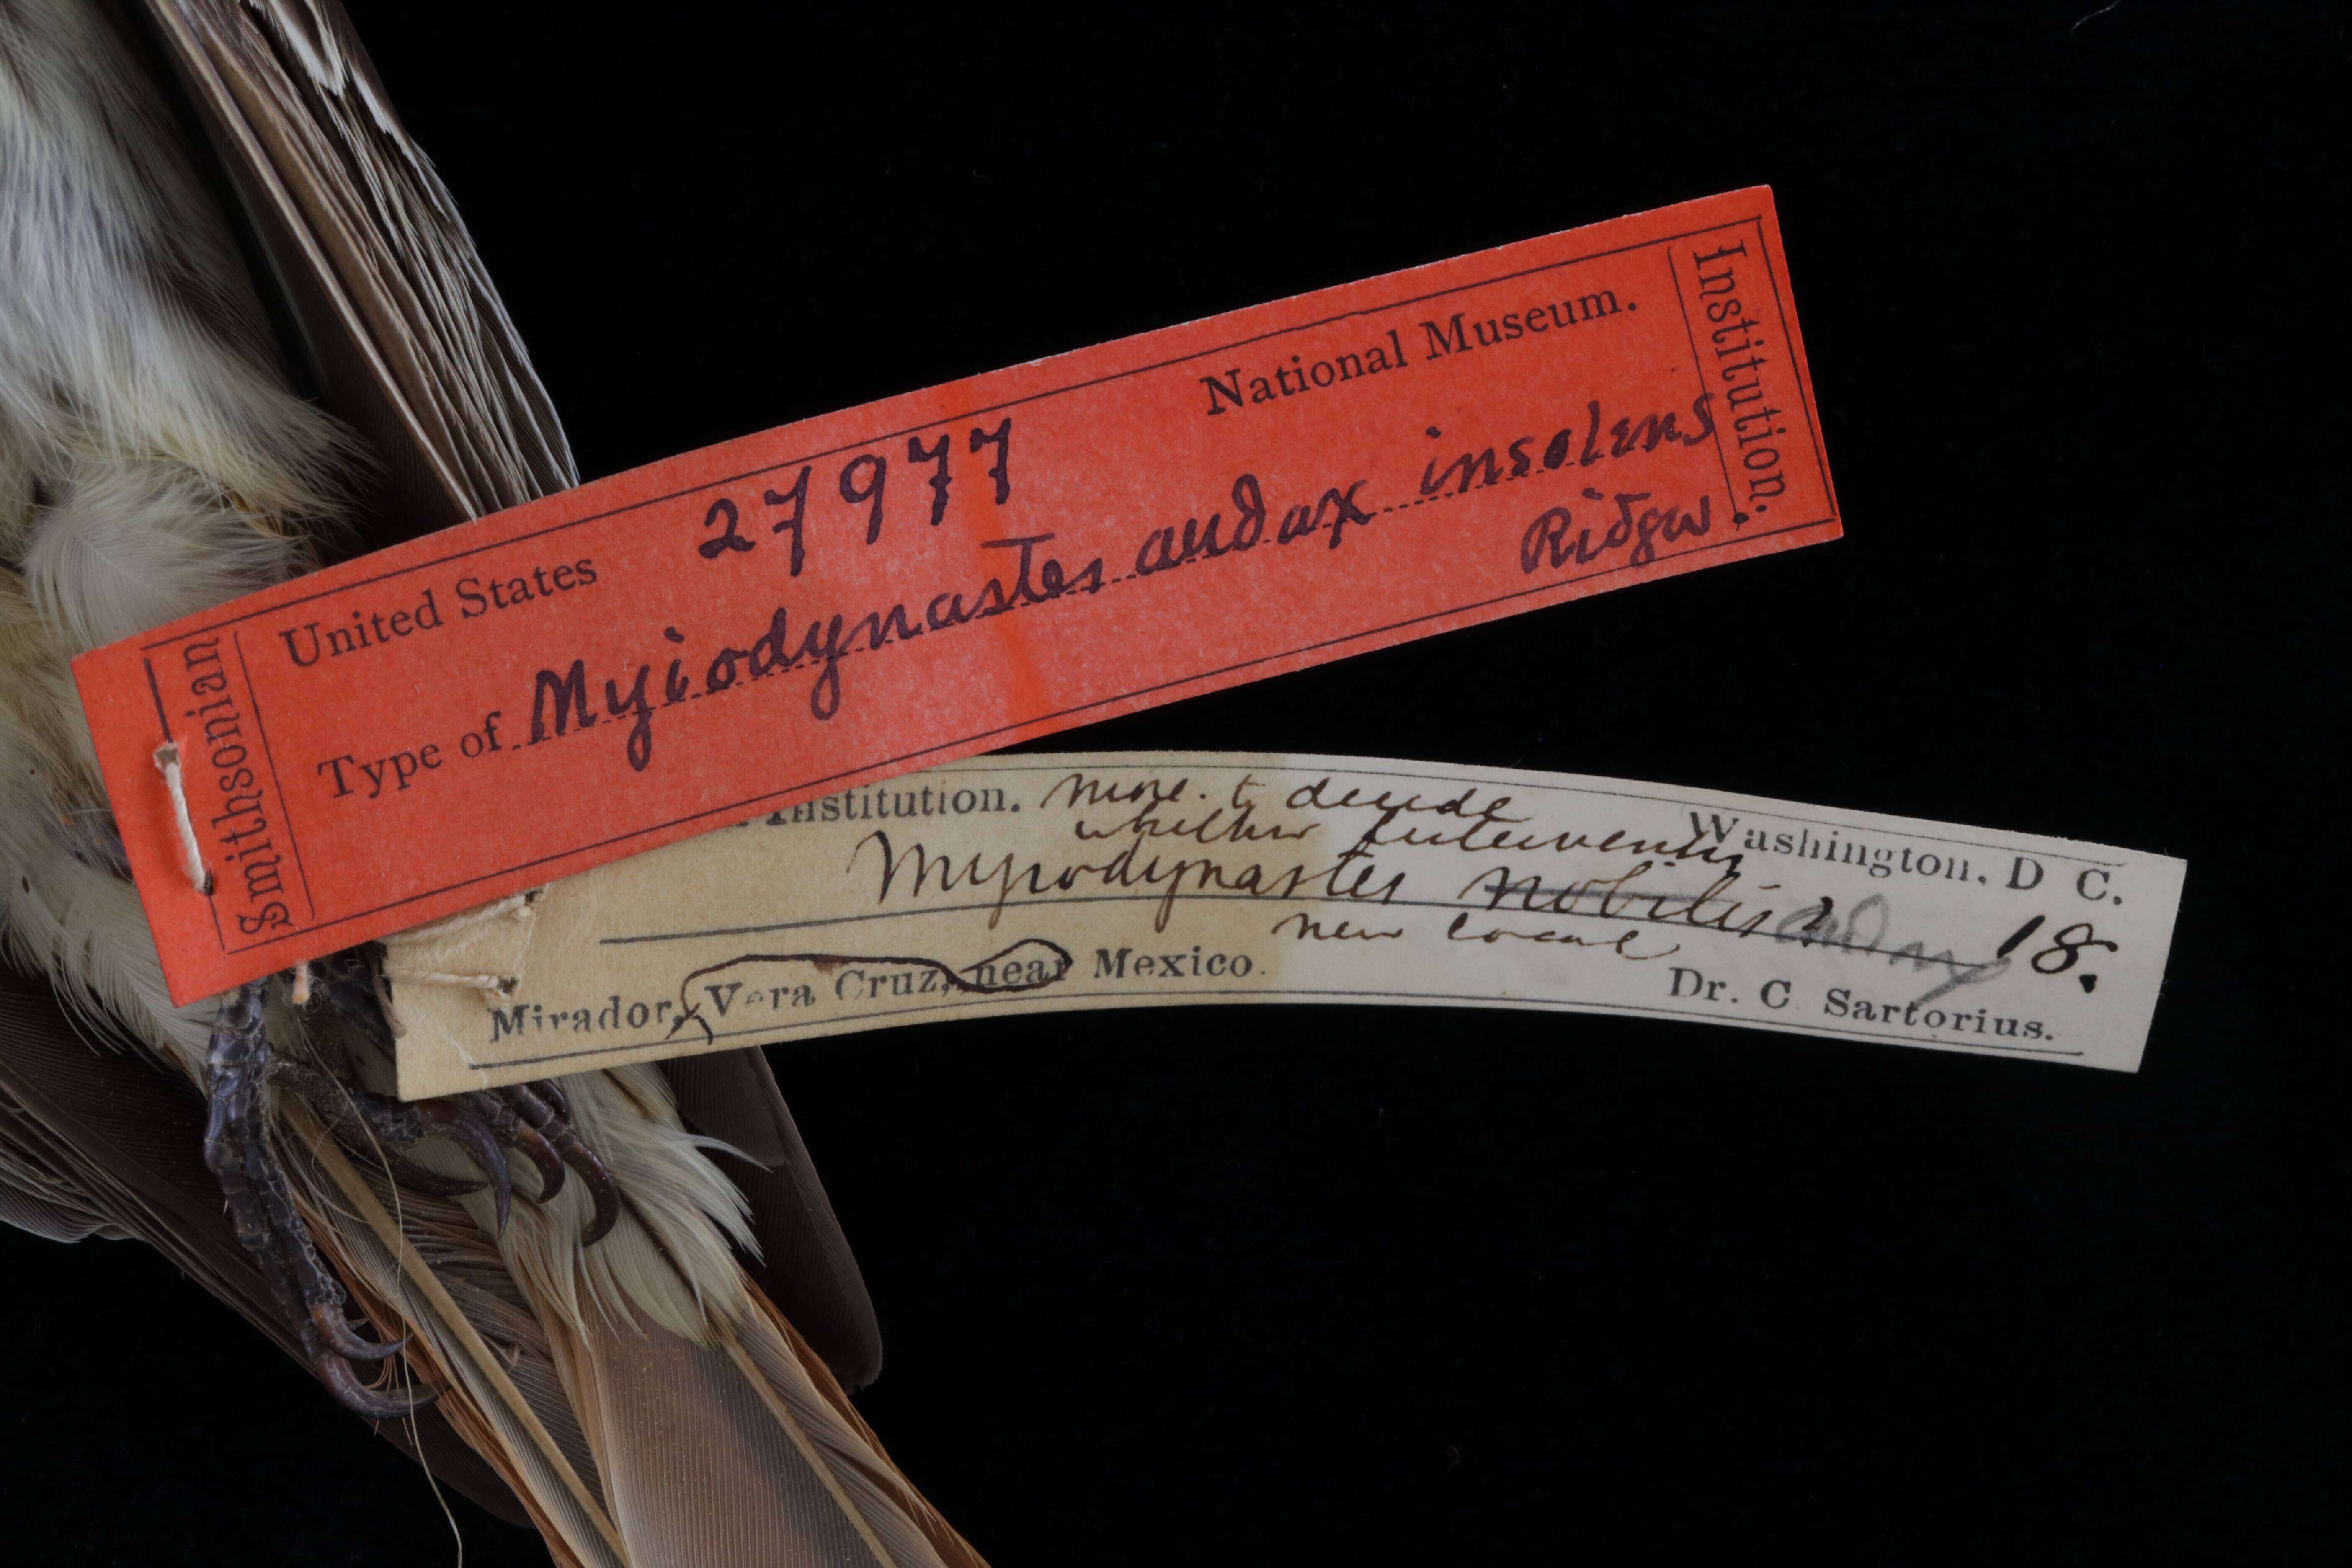 Smithsonian
United States 27977 National Museum.
Type of Myiodynastes audax insolens
Ridgw.
Institution.
Institution. more. to decide Washington, D C.
whether
Myiodynastes nobilis? audax 18.
new locale
Mirador, Vera Cruz, near Mexico. Dr. C Sartorius.